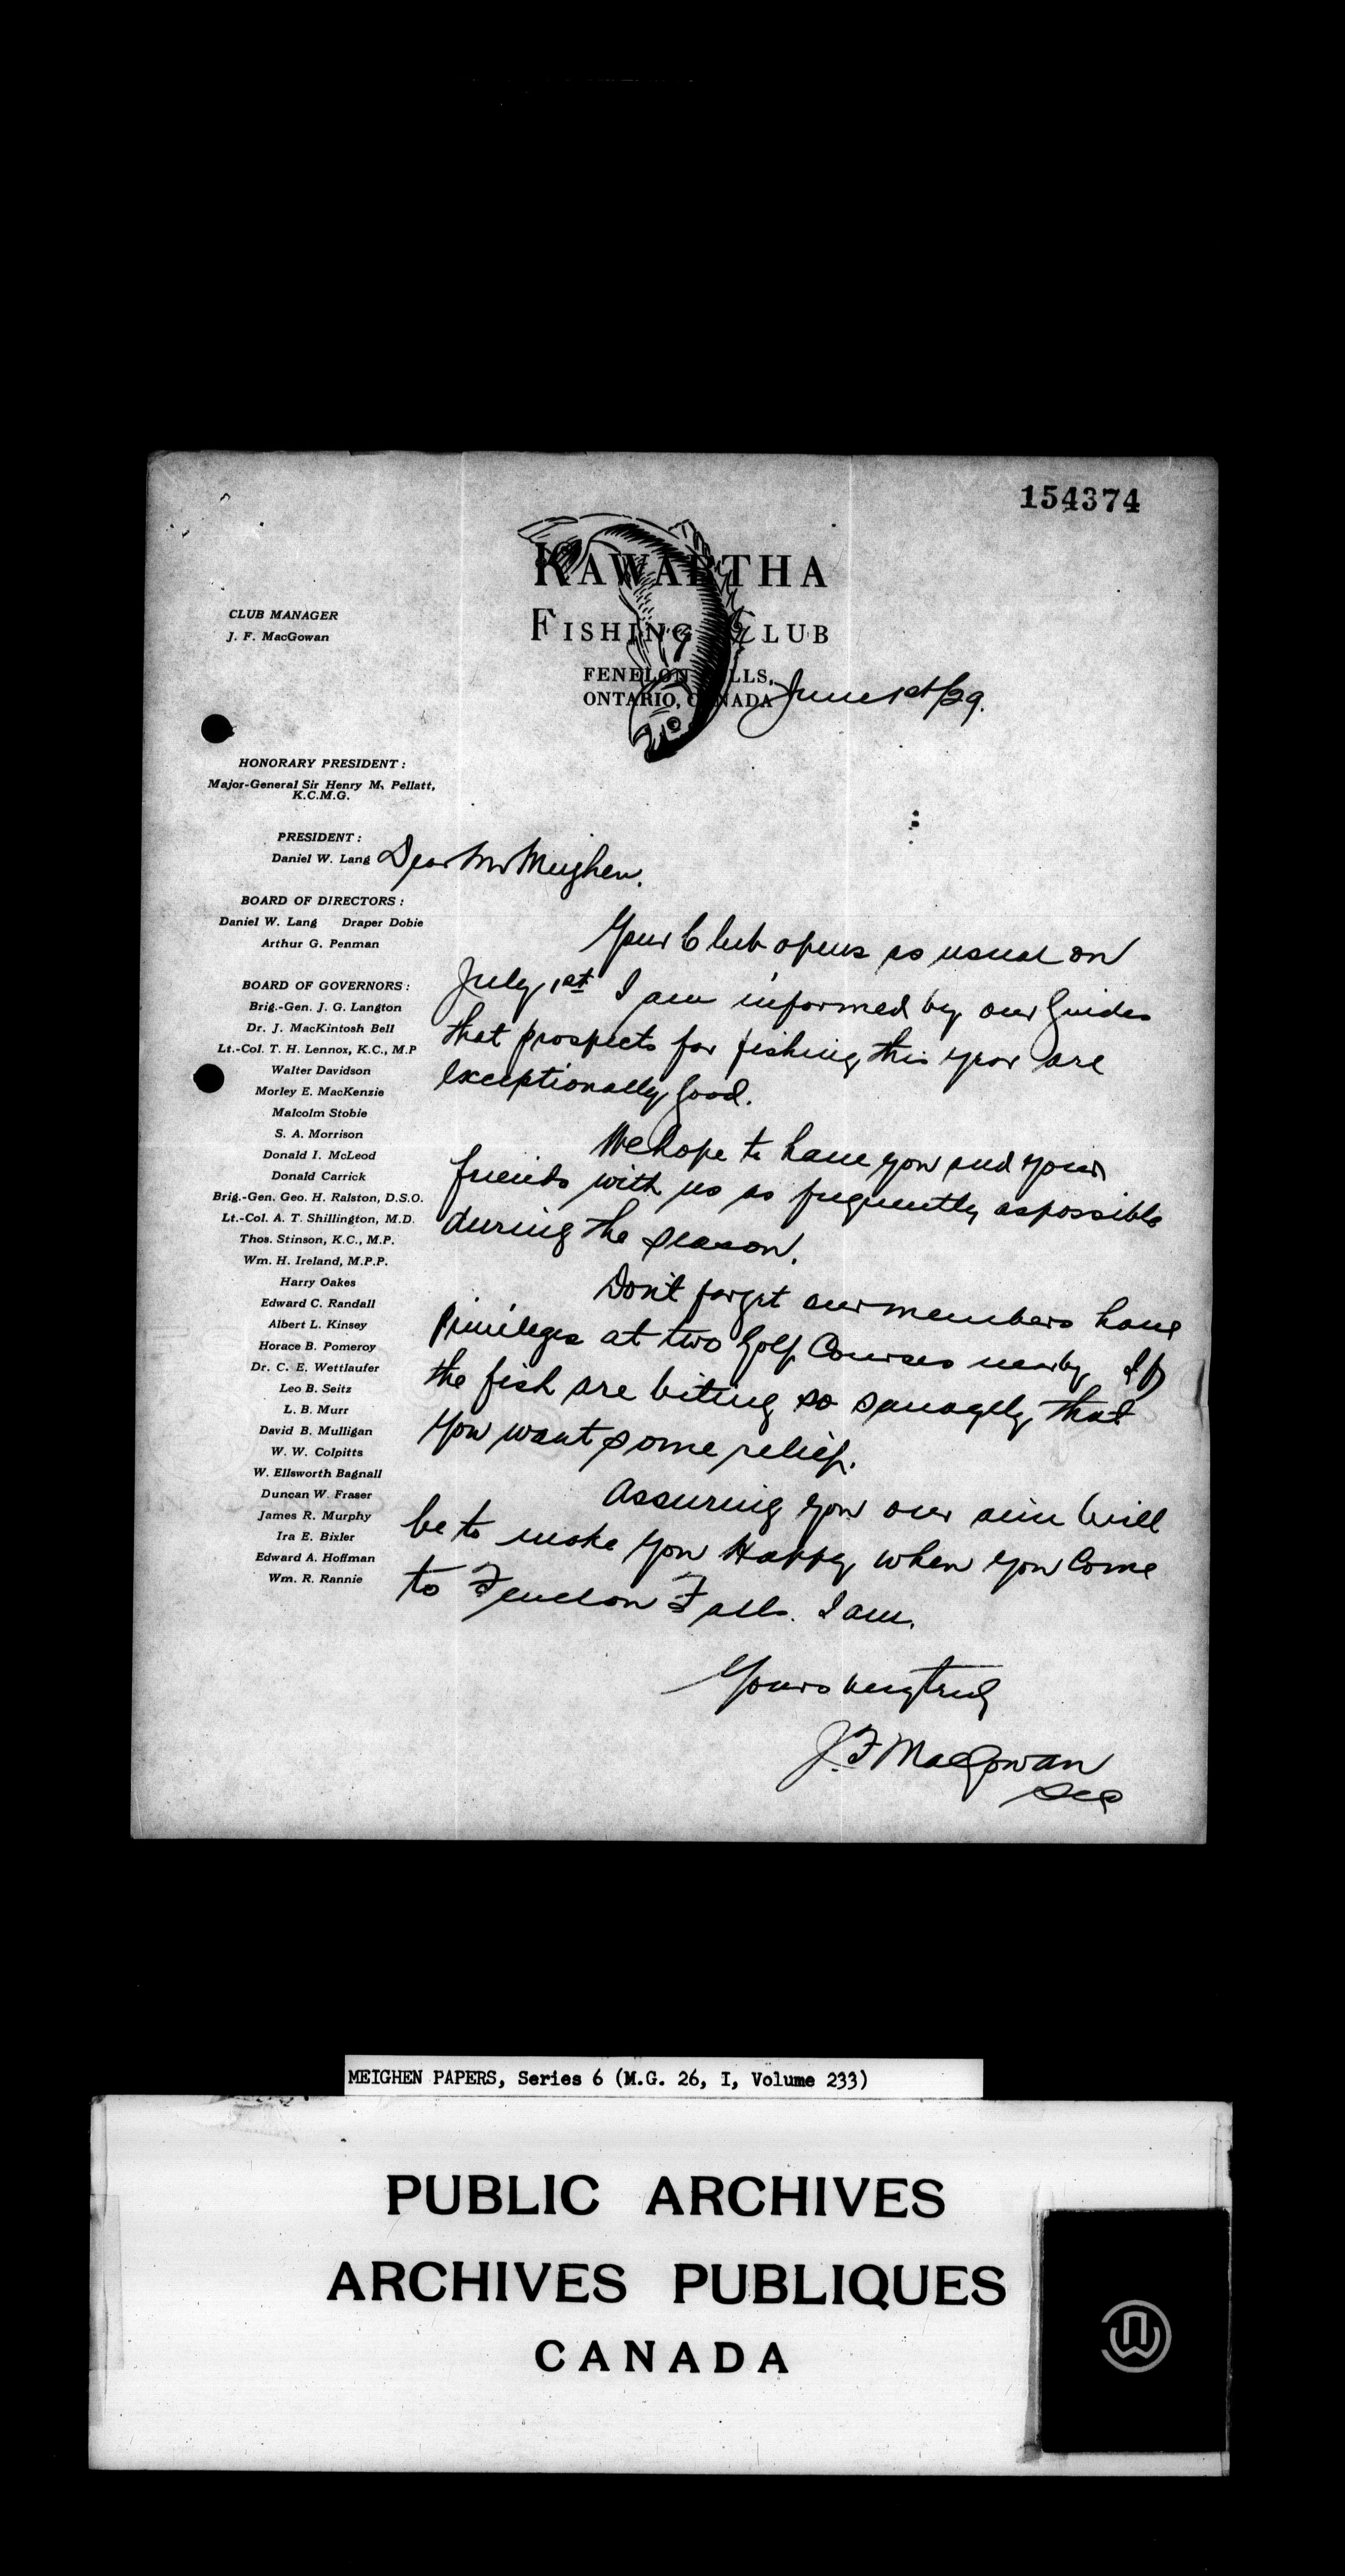 154374
KAWARTHA
FISHING CLUB
FENELON FALLS,
ONTARIO, CANADA
June 1st/29.
CLUB MANAGER
J. F. MacGowan
HONORARY PRESIDENT:
Major-General Sir Henry M. Pellatt,
K.C.M.G.
PRESIDENT:
Daniel W. Lang
BOARD OF DIRECTORS:
Daniel W. Lang Draper Dobie
Arthur G. Penman
BOARD OF GOVERNORS:
Brig.-Gen. J. G. Langton
Dr. J. MacKintosh Bell
Lt.-Col. T. H. Lennox, K.C., M.P
Walter Davidson
Morley E. MacKenzie
Malcolm Stobie
S. A. Morrison
Donald I. McLeod
Donald Carrick
Brig.-Gen. Geo. H. Ralston, D.S.O.
Lt.-Col. A. T. Shillington, M.D.
Thos. Stinson, K.C., M.P.
Wm. H. Ireland, M.P.P.
Harry Oakes
Edward C. Randall
Albert L. Kinsey
Horace B. Pomeroy
Dr. C. E. Wettlaufer
Leo B. Seitz
L. B. Murr
David B. Mulligan
W. W. Colpitts
W. Ellsworth Bagnall
Duncan W. Fraser
James R. Murphy
Ira E. Bixler
Edward A. Hoffman
Wm. R. Rannie
Dear Mr Meighen.
Your Club opens as usual on
July 1st I am informed by our Guides
that prospects for fishing this year are
exceptionally good.
We hope to have you and your
friends with us as frequently as possible
during the season.
Don't forget our members have
privileges at two Golf Courses nearby If
the fish are biting so savagely that
you want some relief.
Assuring you our aim will
be to make you Happy when you come
to Fenelon Falls. I am.
Yours very truly
J.F MacGowan
Sec
MEIGHEN PAPERS, Series 6 (M.G. 26, I, Volume 233)
PUBLIC ARCHIVES
ARCHIVES PUBLIQUES
CANADA